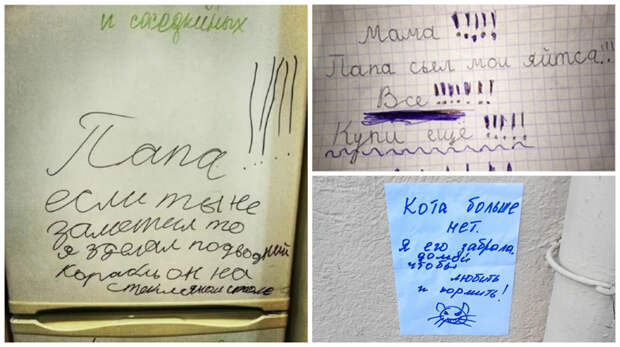 и соседкиных
Папа!!!!
если ты не
заметил то
я зделал подводний
корабль он на
стеклянном столе
Мама !!!!!
Папа сьел мои яйтса!!!
Все !!!!!!!
Купи ещё !!!!!
Кота больше
нет.
Я его забрала
домой
чтобы
любить
и кормить!